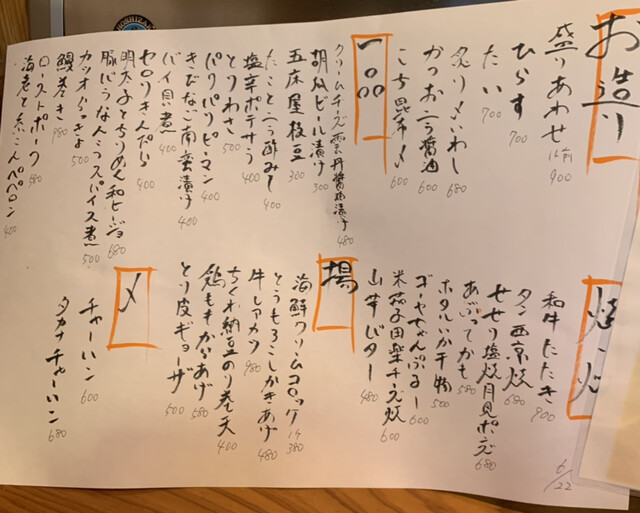 お造り
盛りあわせ 1人前 900
ひらす 700
たい 700
炙り〆いわし 680
かつおニラ醤油 600
こち昆布〆 600
一品
クリームチーズ雲丹醤油漬け 480
胡瓜ビール漬け 300
五床屋枝豆 300
たことニラ酢みそ
塩辛ポテサラ 400
とりわさ 500
パリパリピーマン 400
きびなご南蛮漬け 400
バイ貝煮 400
セロリきんぴら 400
明太子とちりめん和ピージョ 680
豚バラなんこつスパイス煮 500
カツオらっきょ 500
鰻まき 980
ローストポーク 480
海老と糸こんペペロン 400
焼
和牛たたき 900
タン西京焼 680
せせり塩焼月見ポンズ 680
あぶってかも 580
ホタルいか干物 500
ゴーヤちゃんぷるー 600
米茄子田楽チーズ焼 600
山芋バター 480
揚
海鮮クリームコロッケ 1ケ 380
とうもろこしかきあげ 480
牛レアカツ 980
ちくわ納豆のり巻天 400
鶏ももからあげ 680
とり皮ギョーザ 500
〆
チャーハン 600
タカナチャーハン 680
6/22